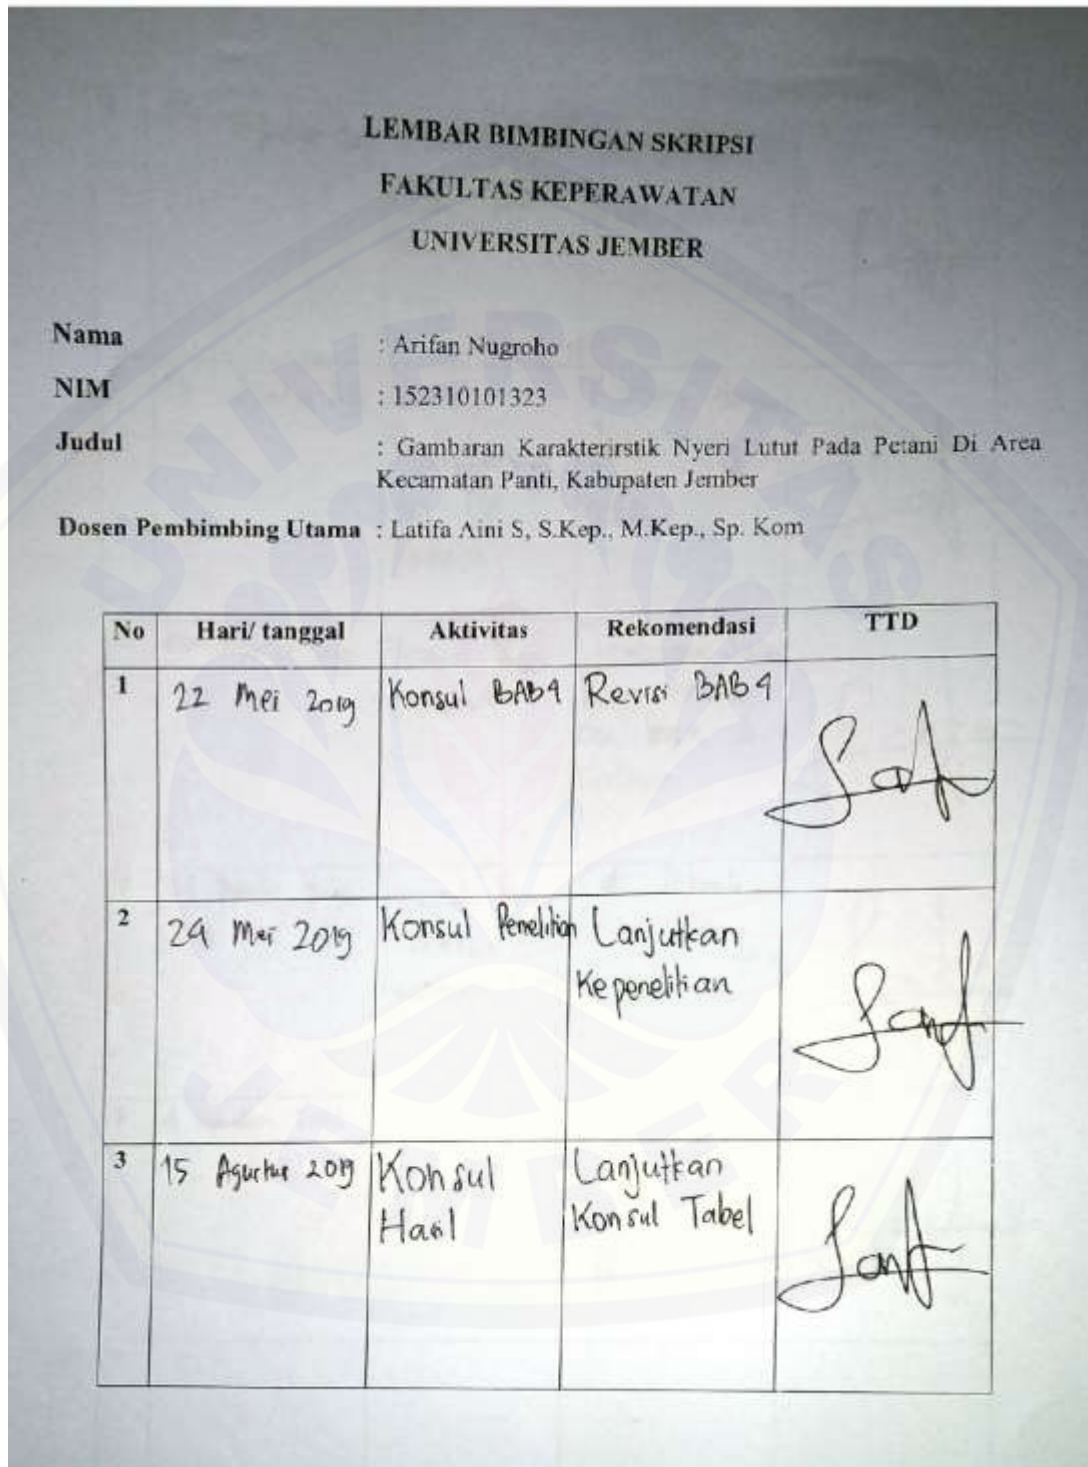 LEMBAR BIMBINGAN SKRIPSI
FAKULTAS KEPERAWATAN
UNIVERSITAS JEMBER
Nama : Arifan Nugroho
NIM : 152310101323
Judul : Gambaran Karakterirstik Nyeri Lutut Pada Petani Di Area
Kecamatan Panti, Kabupaten Jember
Dosen Pembimbing Utama : Latifa Aini S, S.Kep., M.Kep., Sp. Kom
No Hari/ tanggal Aktivitas Rekomendasi TTD
1 22 Mei 2019 Konsul BAB 4 Revisi BAB 4
2 29 Mei 2019 Konsul Penelitian Lanjutkan
Kepenelitian
3 15 Agustus 2019 Konsul Lanjutkan
Hasil Konsul Tabel
UNIVERSITAS
JEMBER